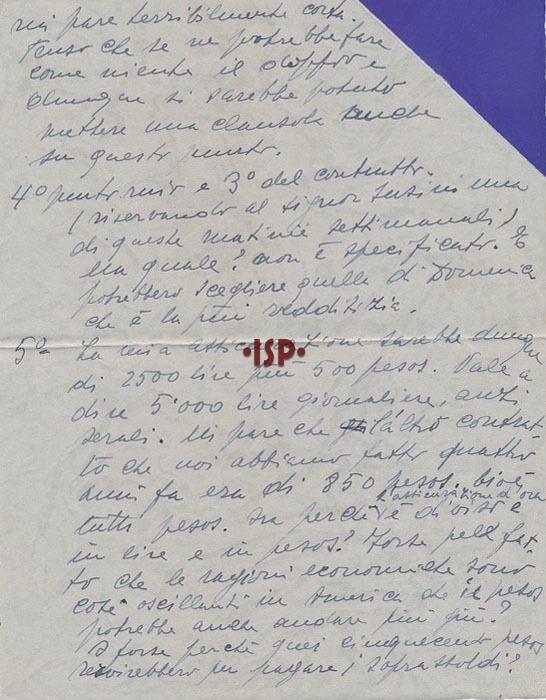 mi pare terribilmente corta.
Penso che se ne potrebbe fare
come niente il doppio e
dunque si sarebbe potuto
mettere una clausola anche
su questo punto.
4º punto mio e 3º del contratto.
(riservando al signor una
di queste matinée settimanali)
Ma quale? non è specificato. E
potrebbero scegliere quella di Domenica
che è la più redditizia.
5º La mia sarebbe dunque
di 2500 lire più 500 pesos. Vale a
dire 5000 lire giornaliere, anzi
serali. Mi pare che l'altro contrat-
to che noi abbiamo fatto quattro
anni fa era di 850 pesos. cioè
tutti pesos. Ma perchè l'attienzazione d'ora è divisa
in lire e in pesos? Forse pel fat-
to che le ragioni economiche sono
così oscillanti in America che il pesos
potrebbe anche andare più giù?
O forse perchè quei cinquecento pesos
servirebbero per pagare i soprassoldi?
•ISP•